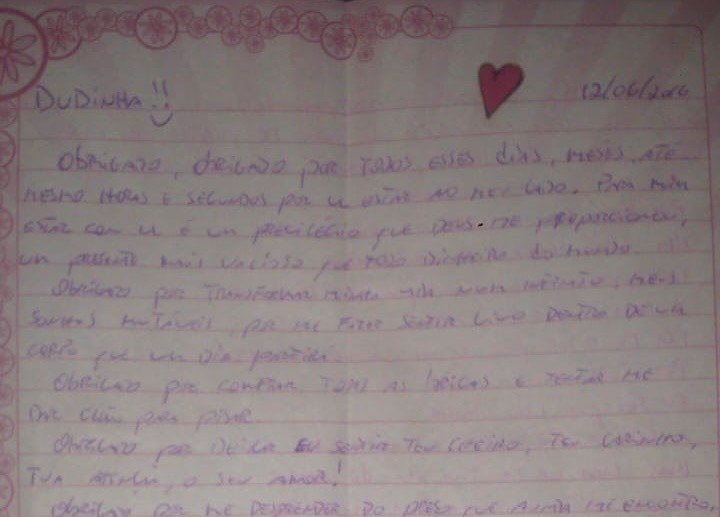 DUDINHA!! 12/06/2016
OBRIGADO, OBRIGADO por TODOS ESSES dias, MESES, ATÉ
MESMO HORAS E SEGUNDOS POR u ESTAR AO MEU LADO. PARA MIM
ESTAR COM u É UM PREVILÉGIO QUE DEUS ME
UM PRESENTE MAIS VALIOSO QUE TODO DINHEIRO do MUNDO.
OBRIGADO por TRANSFORMAR MINHA NUM MEUS
SONHOS por ME FAZER SENTIR VIVO DENTRO DE UM
CORPO QUE UM DIA
OBRIGADO por COMPRAR TODAS AS E TENTAR ME
DAR CHÃO PARA PISAR.
OBRIGADO por DEIXAR EU SENTIR TEU CHEIRO, TEU CARINHO,
TUA O SEU AMOR!
OBRIGADO POR ME DESPRENDER DO QUE ME ENCONTRO,